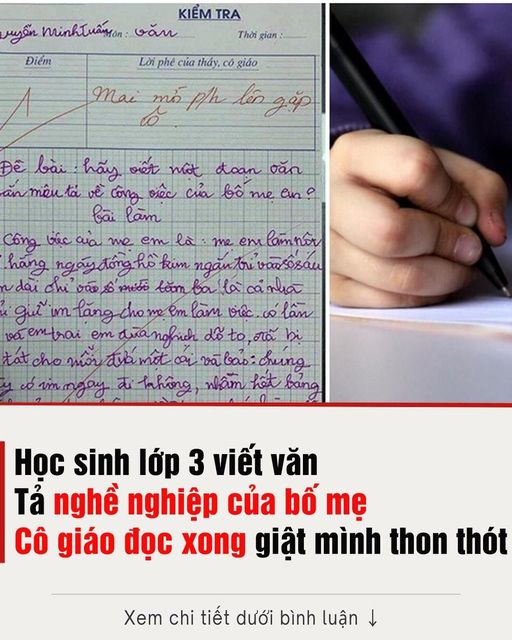 KIỂM TRA
Nguyễn Minh Tuấn Môn : Văn Thời gian :
Điểm Lời phê của thầy, cô giáo
Mai mời ph lên gặp
cô
Đề bài : hãy viết một đoạn văn
văn miêu tả về công việc của bố mẹ em?
bài làm
Công việc của mẹ em là : mẹ em làm
hằng ngày đồng hồ kim ngắn chỉ vào số sáu
dài chỉ vào số tám ba là cả nhà
giữ im lặng cho mẹ em làm việc. có lần
và em trai em đùa nghịch đổ to, đã bị
tát cho mỗi đứa một cái và bảo : chúng
có im ngay đi không, nhầm hết bảng
Học sinh lớp 3 viết văn
Tả nghề nghiệp của bố mẹ
Cô giáo đọc xong giật mình thon thót
Xem chi tiết dưới bình luận ↓